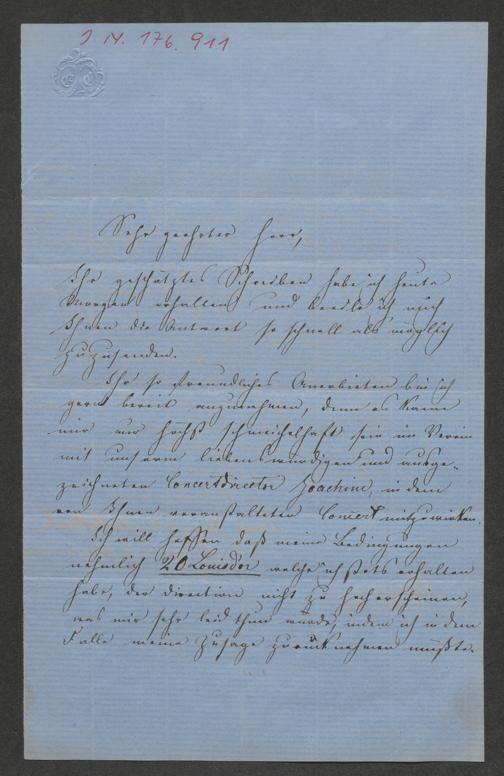 I. N. 176.911
Sehr geehrter Herr,
Ihr geschätztes Schreiben habe ich heute
Morgen erhalten und beeile ich mich
Ihnen die Antwort so schnell als möglich
zuzusenden.
Ihr so freundliches Anerbieten bin ich
gern bereit anzunehmen, denn es kann
mir nur höchst schmeichelhaft sein im Verein
mit unserm liebenswürdigen und ausge-
zeichneten Concertdirector Joachim, in dem
von Ihnen veranstalteten Concert mitzuwirken.
Ich will hoffen daß meine Bedingungen
nehmlich 20 Louisdor welche ich stets erhalten
habe, der Direction nicht zu hoch erscheinen,
was mir sehr leid thun würde, indem ich in dem
Falle meine Zusage zurücknehmen müßte.